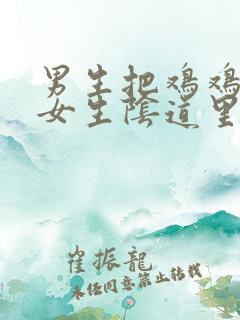 男生把鸡鸡
女生陰道里
崔振龍
未任同意禁止转载